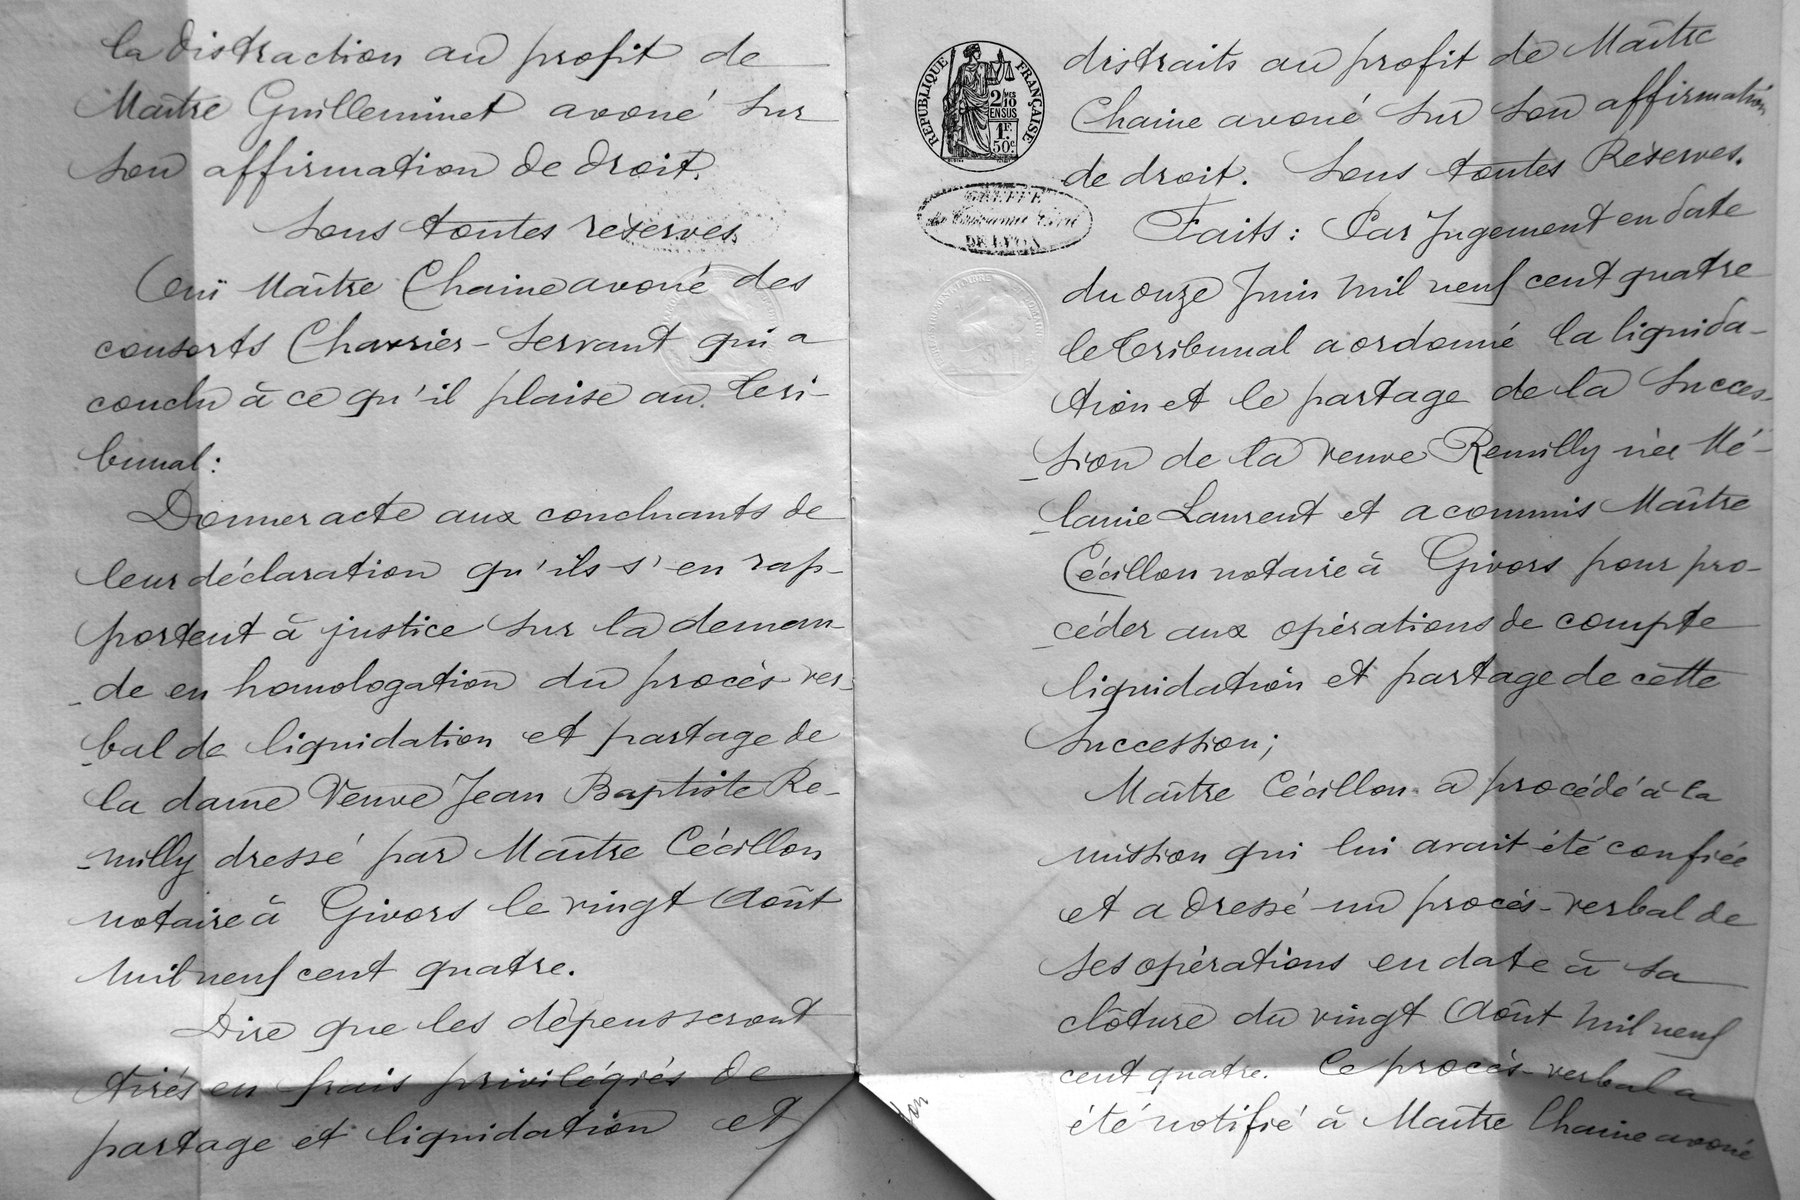 la distraction au profit de
Maître Guilleminet avoué sur
son affirmation de droit.
Sous toutes réserves.
Ouï Maître Chaine avoué des
consorts Charrier-Servant qui a
conclu à ce qu'il plaise au Tri-
bunal:
Donner acte aux concluants de
leur déclaration qu'ils s'en rap-
portent à justice sur la deman-
de en homologation du procès ver-
bal de liquidation et partage de
la dame Veuve Jean Baptiste Re-
milly dressé par Maître Cécillon
notaire à Givors le vingt Août
mil neuf cent quatre.
Dire que les dépens seront
tirés en frais privilégiés de
partage et liquidation et
RÉPUBLIQUE FRANÇAISE
2/10 MES
EN SUS
1F.
50c
GREFFE
DE LYON
distraits au profit de Maître
Chaine avoué sur son affirmation
de droit. Sous toutes Réserves.
Faits: Par Jugement en date
du onze Juin mil neuf cent quatre
le Tribunal a ordonné la liquida-
tion et le partage de la Succes-
sion de la veuve Remilly née Mé-
lanie Laurent et a commis Maître
Cécillon notaire à Givors pour pro-
céder aux opérations de compte
liquidation et partage de cette
Succession;
Maître Cécillon a procédé à la
mission qui lui avait été confiée
et a dressé un procès-verbal de
ses opérations en date à sa
clôture du vingt Août mil neuf
cent quatre. Ce procès-verbal a
été notifié à Maître Chaine avoué